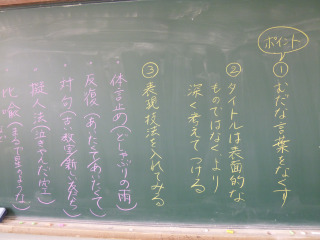 ポイント
① むだな言葉をなくす
② タイトルは表面的な
ものではなくより
深く考えてつける
③ 表現技法を入れてみる
・体言止め(どしゃぶりの雨)
・反復(あいたくてあいたくて)
・対句(古い教室新しい友だち)
・擬人法(泣きやんだ空)
・比喩(まるで星のような)